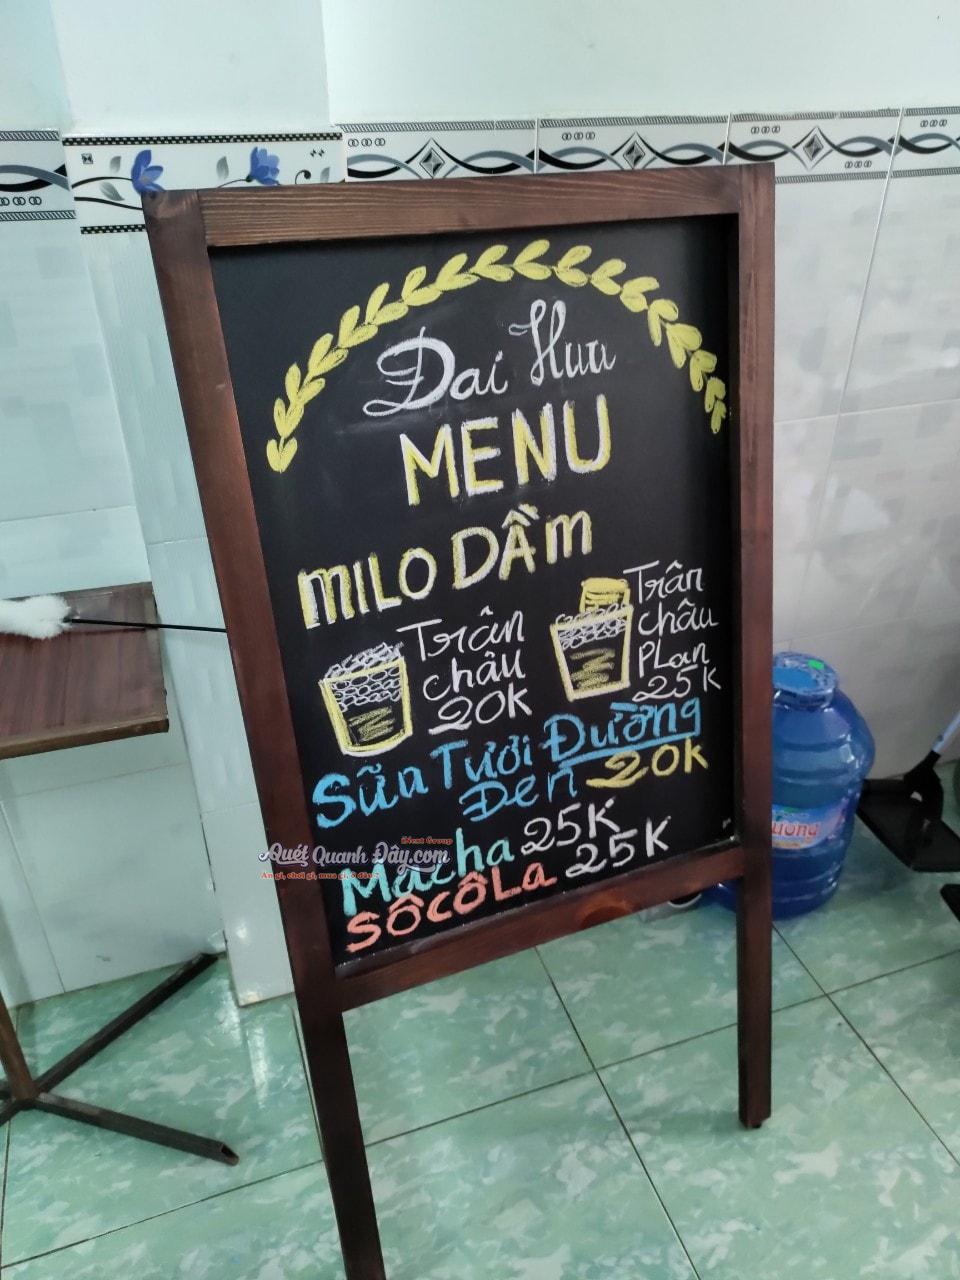 Đai Hưu
MENU
MILO DẦM
Trân
châu
20K
Trân
châu
PLan
25K
Sữa Tươi Đường
Đen 20k
Macha 25K
SÔCÔLa 25K
iNext Group
Quét Quanh Đây.com
Ăn gì, chơi gì, mua gì, ở đâu?